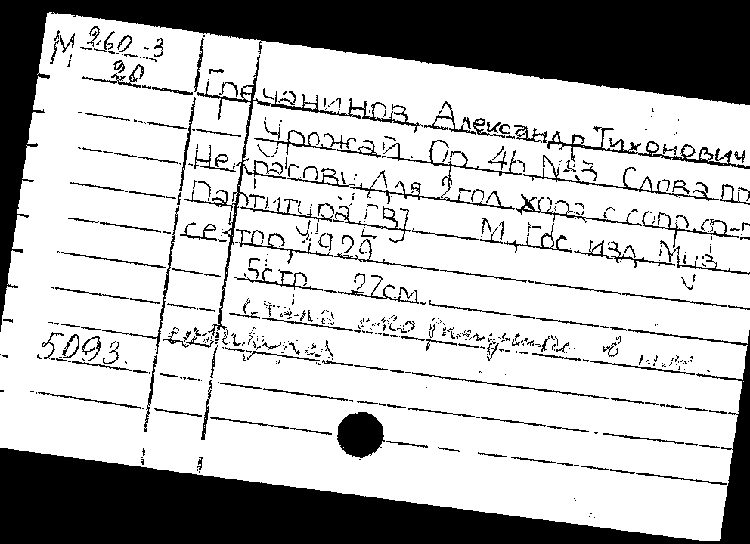 М 260-3
20
Гречанинов, Александр Тихонович
Урожай. Ор. 46 №3 Слова по
Некрасову. Для 2гол хора с сопр. ф-
Партитура [В]   М., Гос. изд. Муз
сектор, 1929.
5стр   27см.
5093.